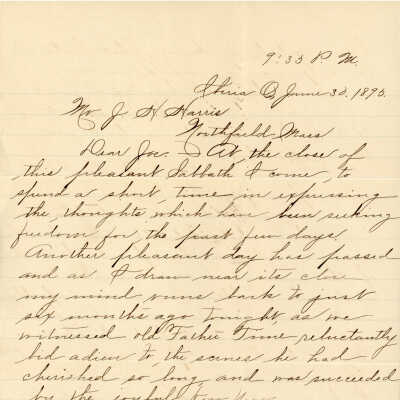 9:35 P.M.
Iberia O. June 30, 1890.
Mr J H Harris
Northfield Mass
Dear Joe:- At the close of
this pleasant Sabbath I come, to
spend a short, time in expressing
the, thoughts which have been seeking
freedom for the past few days.
Another pleasant day has passed
and as I draw near its close
my mind runs back to just
six months ago tonight, as we
witnessed old Father Time reluctantly
bid adieu to, the scenes he had
cherished so long, and was succeeded
by the joyful New Year